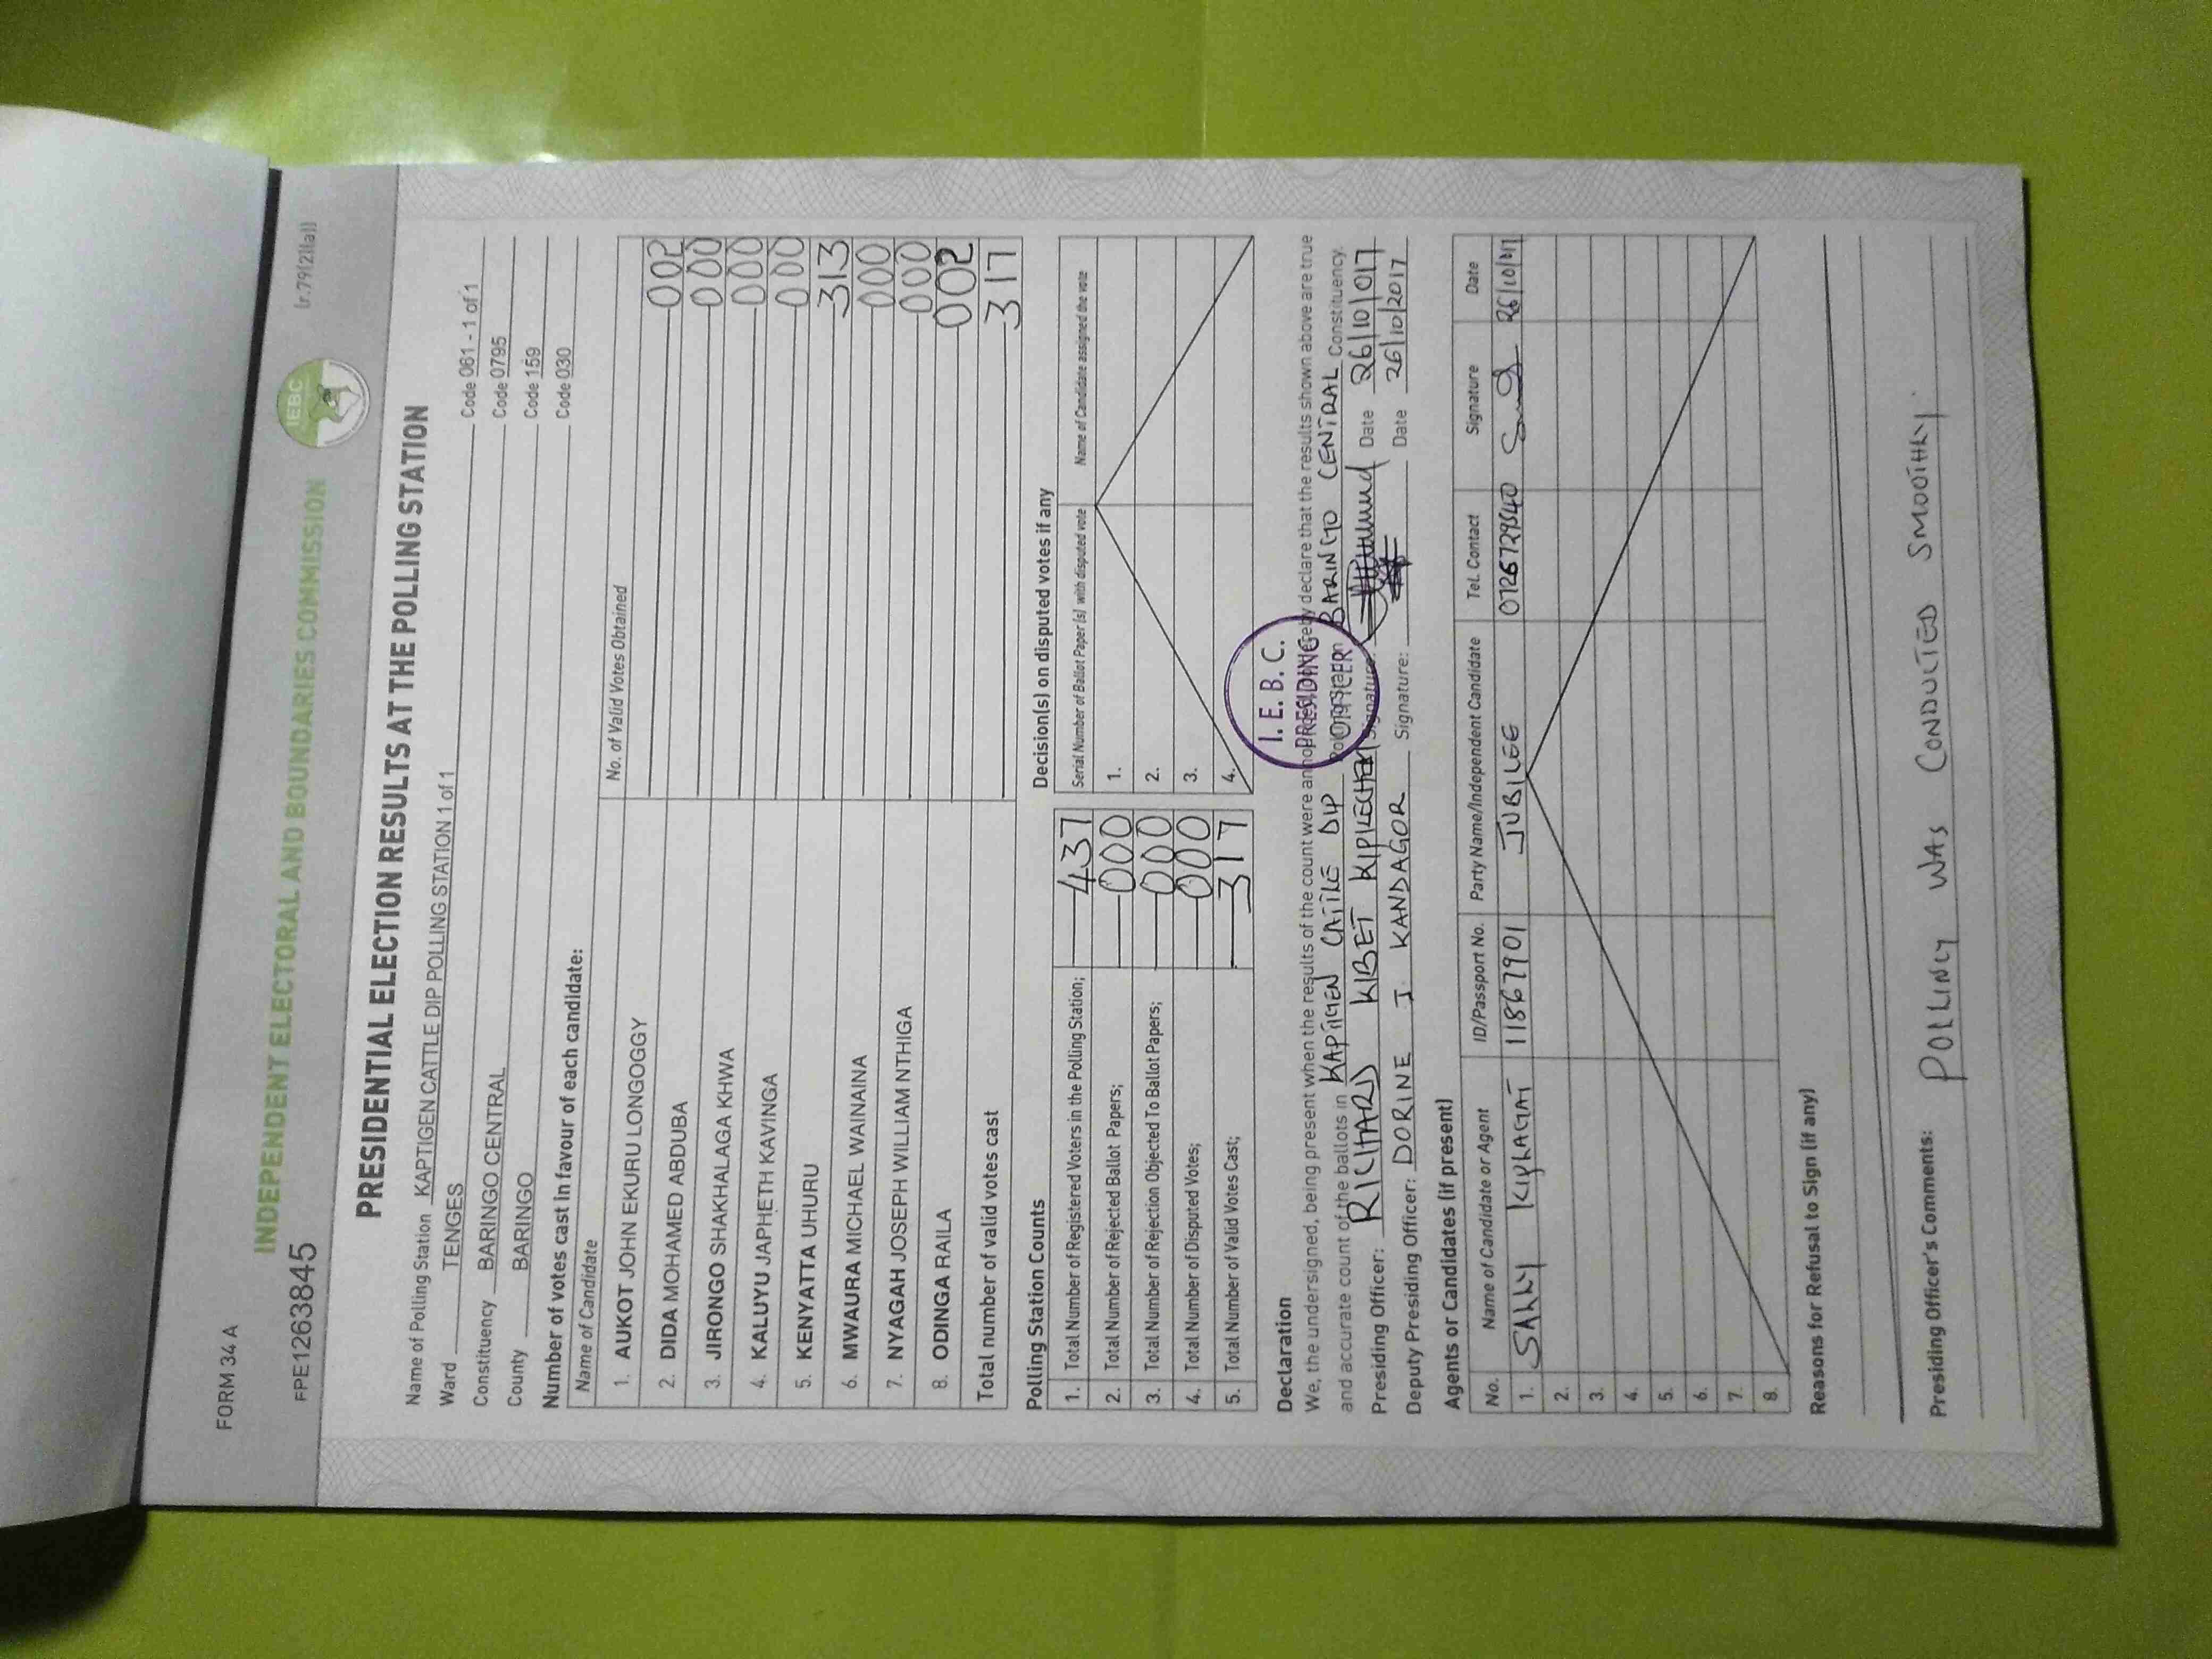 FORM 34 A
(r.79(2)(a))
INDEPENDENT ELECTORAL AND BOUNDARIES COMMISSION
IEBC
FPE1263845
PRESIDENTIAL ELECTION RESULTS AT THE POLLING STATION
Name of Polling Station KAPTIGEN CATTLE DIP POLLING STATION 1 of 1 Code 061 - 1 of 1
Ward TENGES Code 0795
Constituency BARINGO CENTRAL Code 159
County BARINGO Code 030
Number of votes cast in favour of each candidate:
Name of Candidate No. of Valid Votes Obtained
1. AUKOT JOHN EKURU LONGOGGY 002
2. DIDA MOHAMED ABDUBA 000
3. JIRONGO SHAKHALAGA KHWA 000
4. KALUYU JAPHETH KAVINGA 000
5. KENYATTA UHURU 313
6. MWAURA MICHAEL WAINAINA 000
7. NYAGAH JOSEPH WILLIAM NTHIGA 000
8. ODINGA RAILA 002
Total number of valid votes cast 317
Polling Station Counts
1. Total Number of Registered Voters in the Polling Station; 437
2. Total Number of Rejected Ballot Papers; 000
3. Total Number of Rejection Objected To Ballot Papers; 000
4. Total Number of Disputed Votes; 000
5. Total Number of Valid Votes Cast; 317
Decision(s) on disputed votes if any
Serial Number of Ballot Paper (s) with disputed vote Name of Candidate assigned the vote
1.
2.
3.
4.
I. E. B. C.
PRESIDING
OFFICER
Declaration
We, the undersigned, being present when the results of the count were declare that the results shown above are true
and accurate count of the ballots in KAPTIGEN CATTLE DIP BARINGO CENTRAL Constituency.
Presiding Officer: RICHARD KIBET Signature: Date 26/10/017
Deputy Presiding Officer: DORINE J. KANDAGOR Signature: Date 26/10/2017
Agents or Candidates (if present)
No. Name of Candidate or Agent ID/Passport No. Party Name/Independent Candidate Tel. Contact Signature Date
1. SALLY 11867901 JUBILEE 0726729540 26/10/17
2.
3.
4.
5.
6.
7.
8.
Reasons for Refusal to Sign (if any)
Presiding Officer's Comments: POLLING WAS CONDUCTED SMOOTHLY.